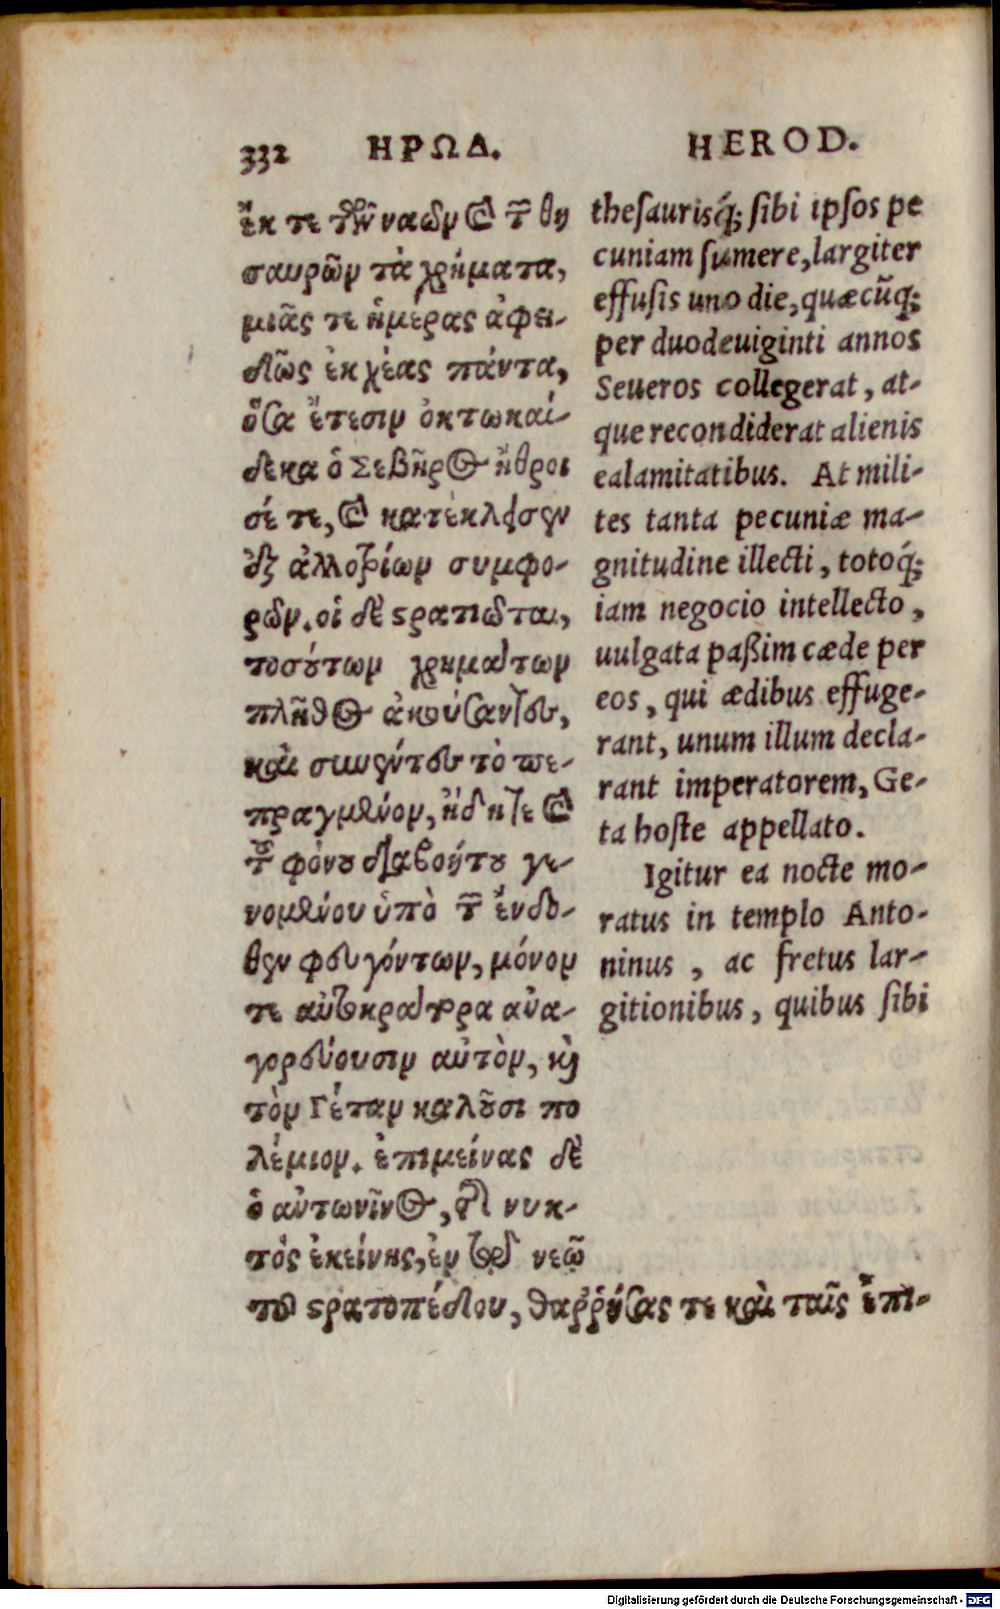 332 ΗΡΩΔ. HEROD.
ἔκ τε τῶν ναῶν καὶ τ̃ θη
σαυρῶν τὰ χρήματα,
μιᾶς τε ἡμέρας ἀφει-
δῶς ἐκχέας πάντα,
ὅσα ἔτεσιν ὀκτωκαί-
δεκα ὁ Σεβῆρος ἤθροι
σέ τε, καὶ κατέκλεισεν
ἐξ ἀλλοτρίων συμφο-
ρῶν. οἱ δὲ στρατιῶται,
τοσούτων χρημάτων
πλῆθος ἀκούσαντες,
καὶ συνέντες τὸ πε-
πραγμένον, ἤδη τε καὶ
τοῦ φόνου διαβοήτου γε-
νομένου ὑπὸ τ̃ ἔνδο-
θεν φευγόντων, μόνον
τε αὐτοκράτορα ἀνα-
γορεύουσιν αὐτὸν, καὶ
τὸν Γέταν καλοῦσι πο
λέμιον. ἐπιμείνας δὲ
ὁ αὐτωνῖνος, τῆς νυκ-
τὸς ἐκείνης, ἐν τῷ νεῷ
τοῦ στρατοπέδου, θαῤῥήσας τε καὶ ταῖς ἐπι-
thesaurisq́; sibi ipsos pe
cuniam sumere, largiter
effusis uno die, quæcũq;
per duodeuiginti annos
Seueros collegerat, at-
que recondiderat alienis
ealamitatibus. At mili-
tes tanta pecuniæ ma-
gnitudine illecti, totoq́;
iam negocio intellecto,
uulgata paßim cæde per
eos, qui ædibus effuge-
rant, unum illum decla-
rant imperatorem, Ge-
ta hoste appellato.
Igitur ea nocte mo-
ratus in templo Anto-
ninus, ac fretus lar-
gitionibus, quibus sibi
Digitalisierung gefördert durch die Deutsche Forschungsgemeinschaft - DFG